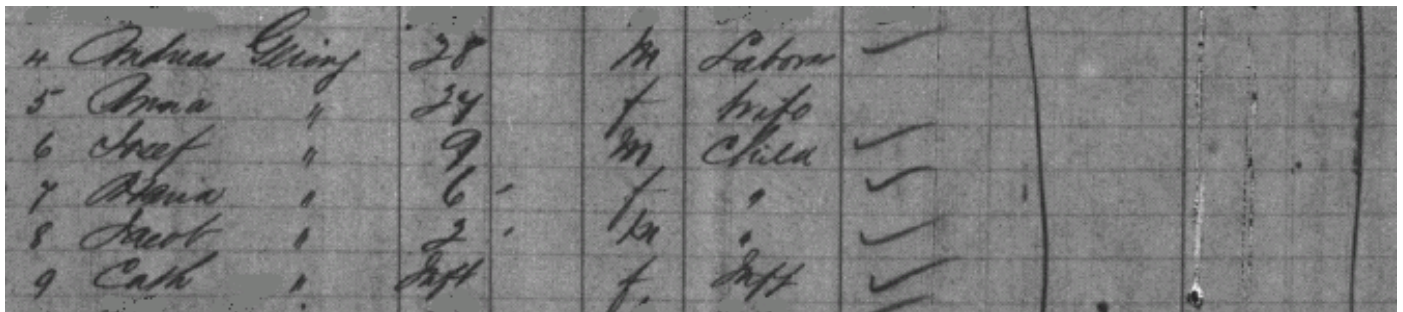 4 Andreas Gering 28 m Laborer
5 Anna " 24 f Wife
6 Josef " 9 m Child
7 Maria " 6 f "
8 Jacob " 2 m "
9 Cath " Inft f. Inft